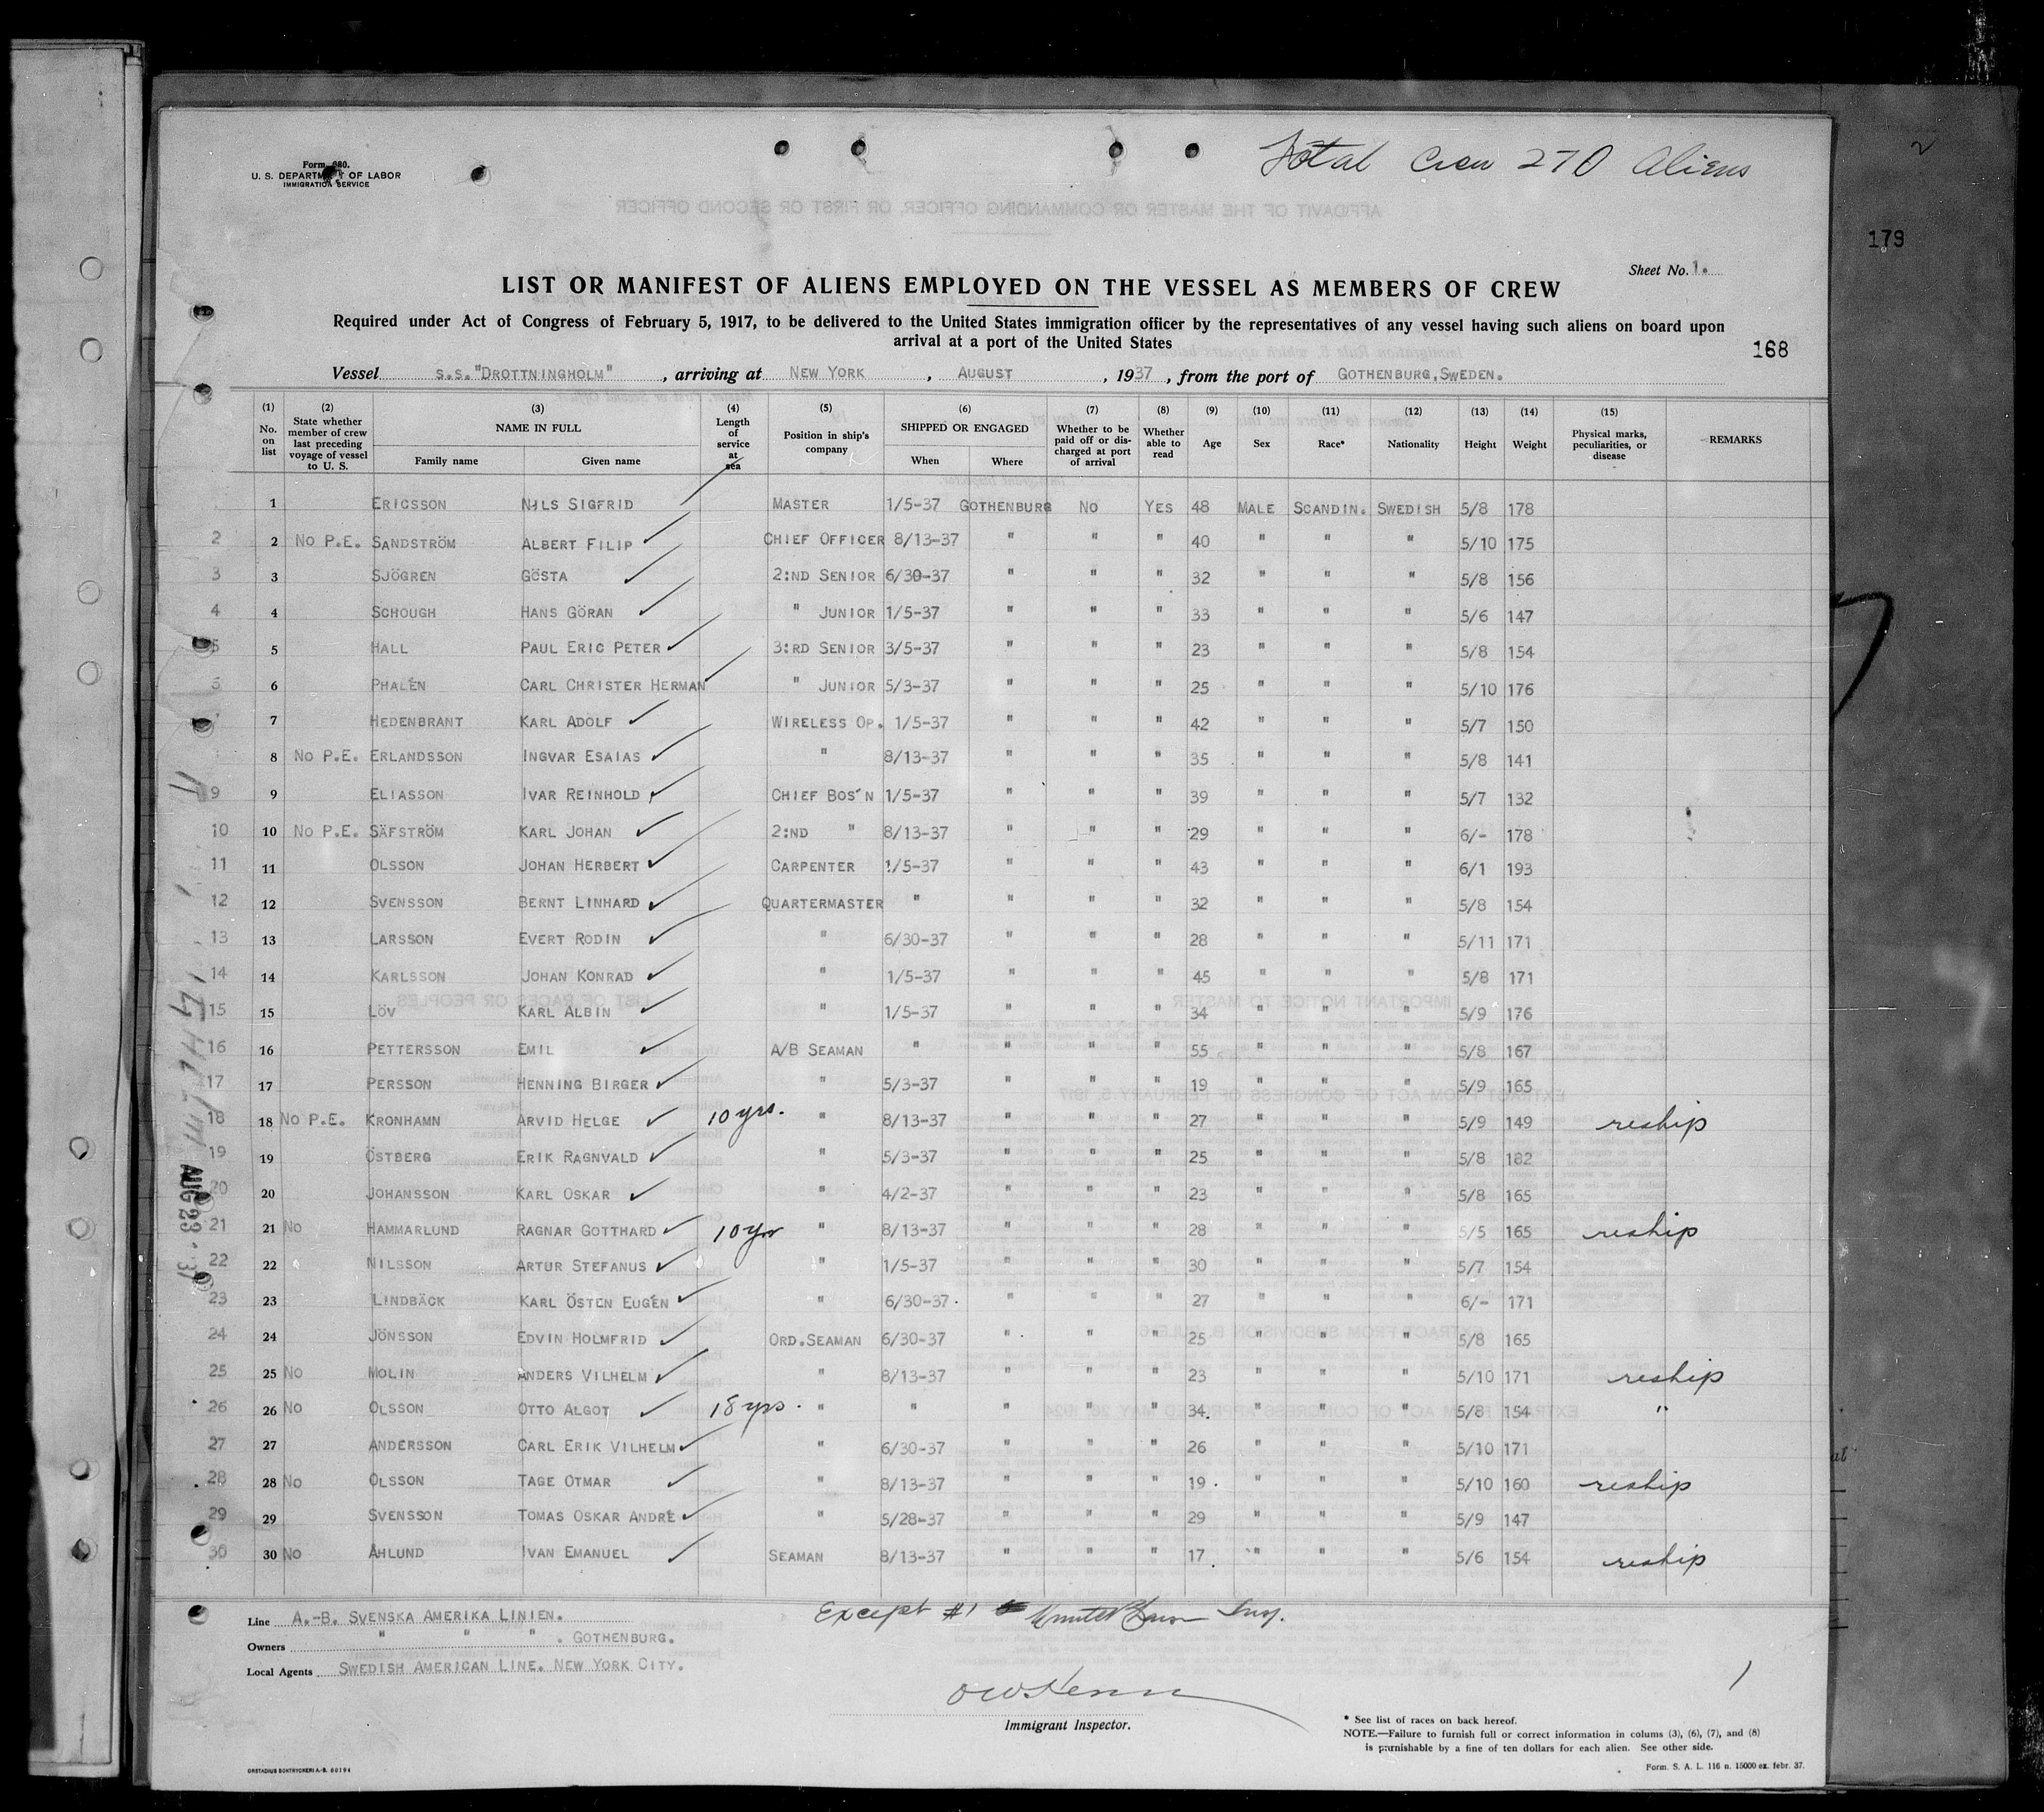 Total Crew 270 Aliens
Form 680.
U. S. DEPARTMENT OF LABOR
IMMIGRATION SERVICE
179
Sheet No. 1.
LIST OR MANIFEST OF ALIENS EMPLOYED ON THE VESSEL AS MEMBERS OF CREW
Required under Act of Congress of February 5, 1917, to be delivered to the United States immigration officer by the representatives of any vessel having such aliens on board upon
arrival at a port of the United States
168
Vessel S.S."DROTTNINGHOLM", arriving at NEW YORK, AUGUST, 1937, from the port of GOTHENBURG, SWEDEN.
(1) No. on list (2) State whether member of crew last preceding voyage of vessel to U. S. (3) NAME IN FULL Family name Given name (4) Length of service at sea (5) Position in ship's company (6) SHIPPED OR ENGAGED When Where (7) Whether to be paid off or discharged at port of arrival (8) Whether able to read (9) Age (10) Sex (11) Race* (12) Nationality (13) Height (14) Weight (15) Physical marks, peculiarities, or disease REMARKS
1 ERICSSON NILS SIGFRID MASTER 1/5-37 GOTHENBURG NO YES 48 MALE SCANDIN. SWEDISH 5/8 178
2 2 NO P.E. SANDSTRÖM ALBERT FILIP CHIEF OFFICER 8/13-37 " " " 40 " " " 5/10 175
3 3 SJÖGREN GÖSTA 2:ND SENIOR 6/30-37 " " " 32 " " " 5/8 156
4 4 SCHOUGH HANS GÖRAN " JUNIOR 1/5-37 " " " 33 " " " 5/6 147
5 5 HALL PAUL ERIC PETER 3:RD SENIOR 3/5-37 " " " 23 " " " 5/8 154
6 PHALÉN CARL CHRISTER HERMAN " JUNIOR 5/3-37 " " " 25 " " " 5/10 176
7 HEDENBRANT KARL ADOLF WIRELESS OP. 1/5-37 " " " 42 " " " 5/7 150
8 NO P.E. ERLANDSSON INGVAR ESAIAS " 8/13-37 " " " 35 " " " 5/8 141
9 9 ELIASSON IVAR REINHOLD CHIEF BOS'N 1/5-37 " " " 39 " " " 5/7 132
10 10 NO P.E. SÄFSTRÖM KARL JOHAN 2:ND " 8/13-37 " " " 29 " " " 6/- 178
11 11 OLSSON JOHAN HERBERT CARPENTER 1/5-37 " " " 43 " " " 6/1 193
12 12 SVENSSON BERNT LINHARD QUARTERMASTER " " " " 32 " " " 5/8 154
13 13 LARSSON EVERT RODIN " 6/30-37 " " " 28 " " " 5/11 171
14 14 KARLSSON JOHAN KONRAD " 1/5-37 " " " 45 " " " 5/8 171
15 15 LÖV KARL ALBIN " 1/5-37 " " " 34 " " " 5/9 176
16 16 PETTERSSON EMIL A/B SEAMAN " " " " 55 " " " 5/8 167
17 17 PERSSON HENNING BIRGER " 5/3-37 " " " 19 " " " 5/9 165
18 18 NO P.E. KRONHAMN ARVID HELGE 10 yrs. " 8/13-37 " " " 27 " " " 5/9 149 reship
19 19 ÖSTBERG ERIK RAGNVALD " 5/3-37 " " " 25 " " " 5/8 182
20 20 JOHANSSON KARL OSKAR " 4/2-37 " " " 23 " " " 5/8 165
21 21 NO HAMMARLUND RAGNAR GOTTHARD 10 yrs " 8/13-37 " " " 28 " " " 5/5 165 reship
22 22 NILSSON ARTUR STEFANUS " 1/5-37 " " " 30 " " " 5/7 154
23 23 LINDBÄCK KARL ÖSTEN EUGÉN " 6/30-37 " " " 27 " " " 6/- 171
24 24 JÖNSSON EDVIN HOLMFRID ORD.SEAMAN 6/30-37 " " " 25 " " " 5/8 165
25 25 NO MOLIN ANDERS VILHELM " 8/13-37 " " " 23 " " " 5/10 171 reship
26 26 NO OLSSON OTTO ALGOT 18 yrs. " " " " " 34 " " " 5/8 154 "
27 27 ANDERSSON CARL ERIK VILHELM " 6/30-37 " " " 26 " " " 5/10 171
28 28 NO OLSSON TAGE OTMAR " 8/13-37 " " " 19 " " " 5/10 160 reship
29 29 SVENSSON TOMAS OSKAR ANDRÉ " 5/28-37 " " " 29 " " " 5/9 147
30 30 NO ÅHLUND IVAN EMANUEL SEAMAN 8/13-37 " " " 17 " " " 5/6 154 reship
AUG 23 '37
Line A.-B. SVENSKA AMERIKA LINIEN.
Except #1 Insp.
Owners " " " . GOTHENBURG.
Local Agents SWEDISH AMERICAN LINE. NEW YORK CITY.
Immigrant Inspector.
* See list of races on back hereof.
NOTE.—Failure to furnish full or correct information in colums (3), (6), (7), and (8)
is parnishable by a fine of ten dollars for each alien. See other side.
ORSTADIUS BOKTRYCKERI A.-B. 60194
Form. S. A. L. 116 n. 15000 ex. febr. 37.